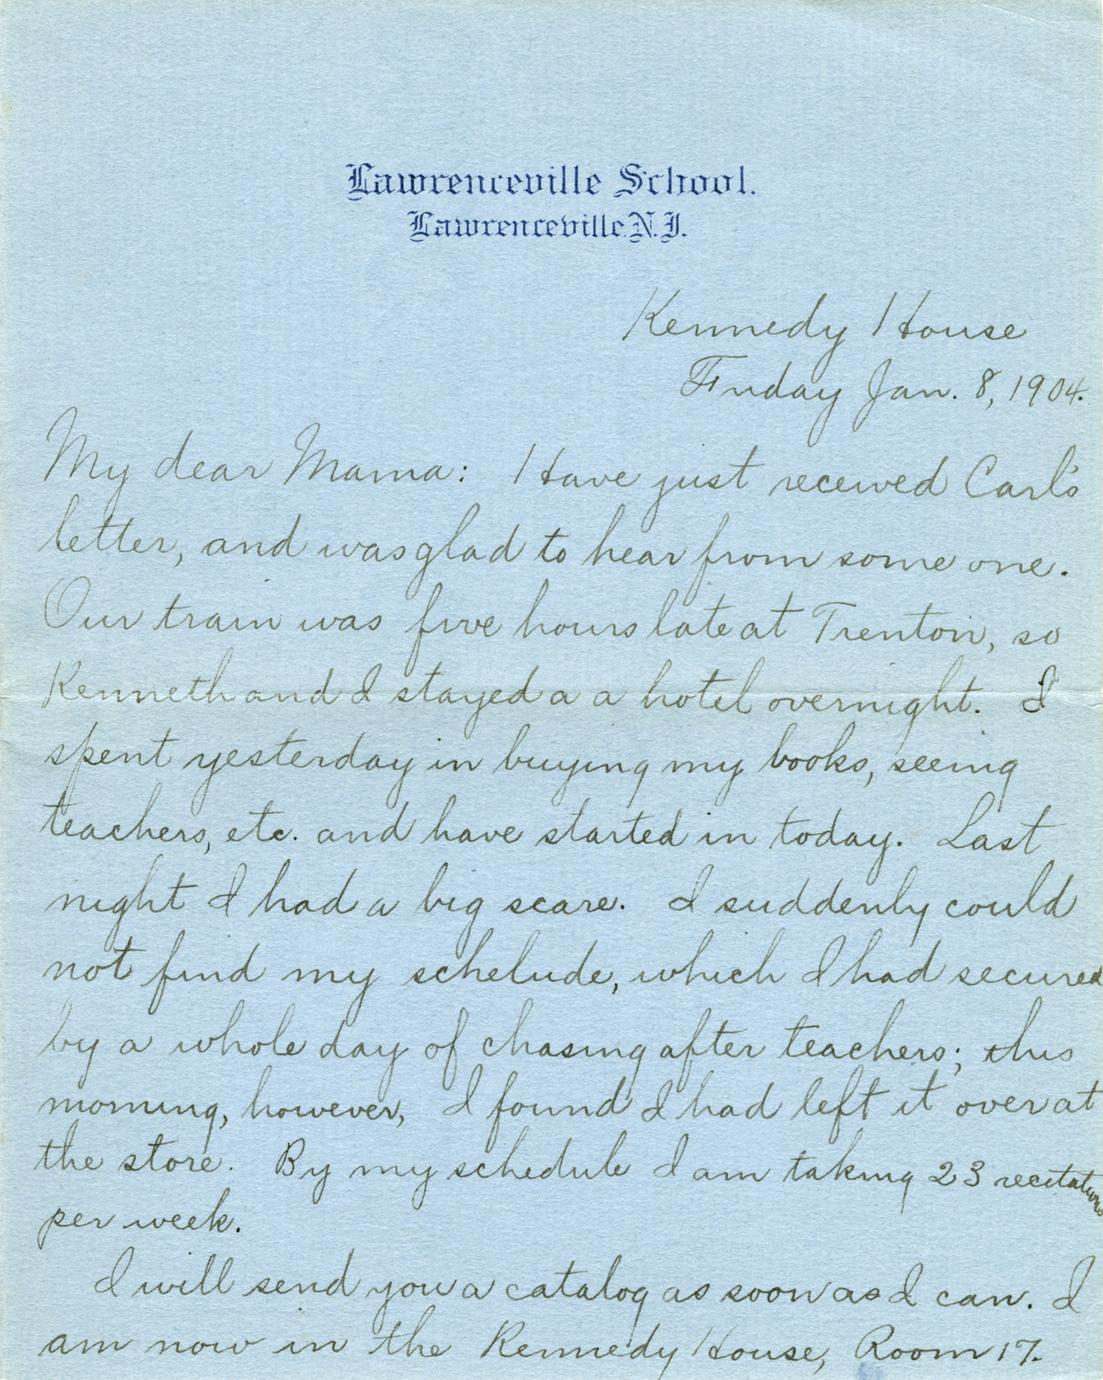 Lawrenceville School.
Lawrenceville N.J.
Kennedy House
Friday Jan. 8, 1904.
My dear Mama: Have just received Carl's
letter, and was glad to hear from some one.
Our train was five hours late at Trenton, so
Kenneth and I stayed a a hotel overnight. I
spent yesterday in buying my books, seeing
teachers, etc. and have started in today. Last
night I had a big scare. I suddenly could
not find my schelude, which I had secured
by a whole day of chasing after teachers; this
morning, however, I found I had left it over at
the store. By my schedule I am taking 23 recitations
per week.
I will send you a catalog as soon as I can. I
am now in the Kennedy House, Room 17.